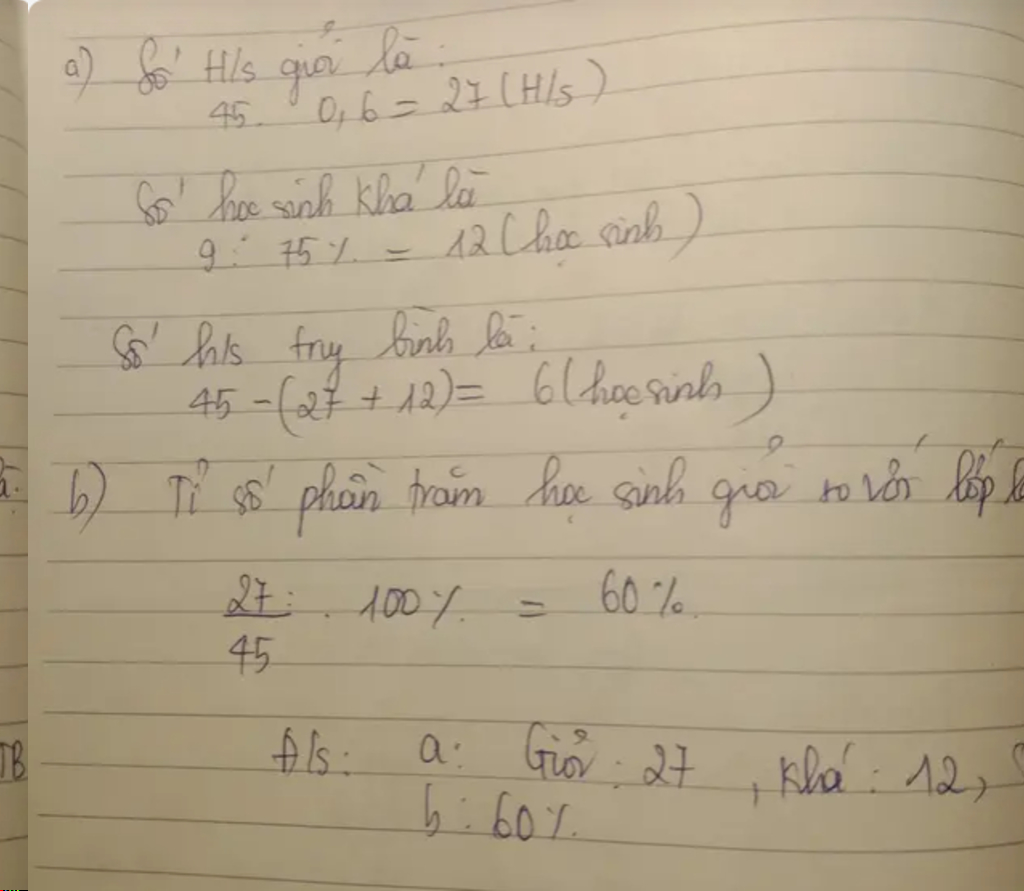 a) Số H/s giỏi là:
45. 0,6 = 27 (H/s)
Số học sinh khá là
9 : 75% = 12 (học sinh)
Số h/s trung bình là:
45 - (27 + 12) = 6 (học sinh)
b) Tỉ số phần trăm học sinh giỏi so với lớp
27 . 100% = 60%
45
Đ/s: a: Giỏi: 27, Khá: 12,
b: 60%
TB